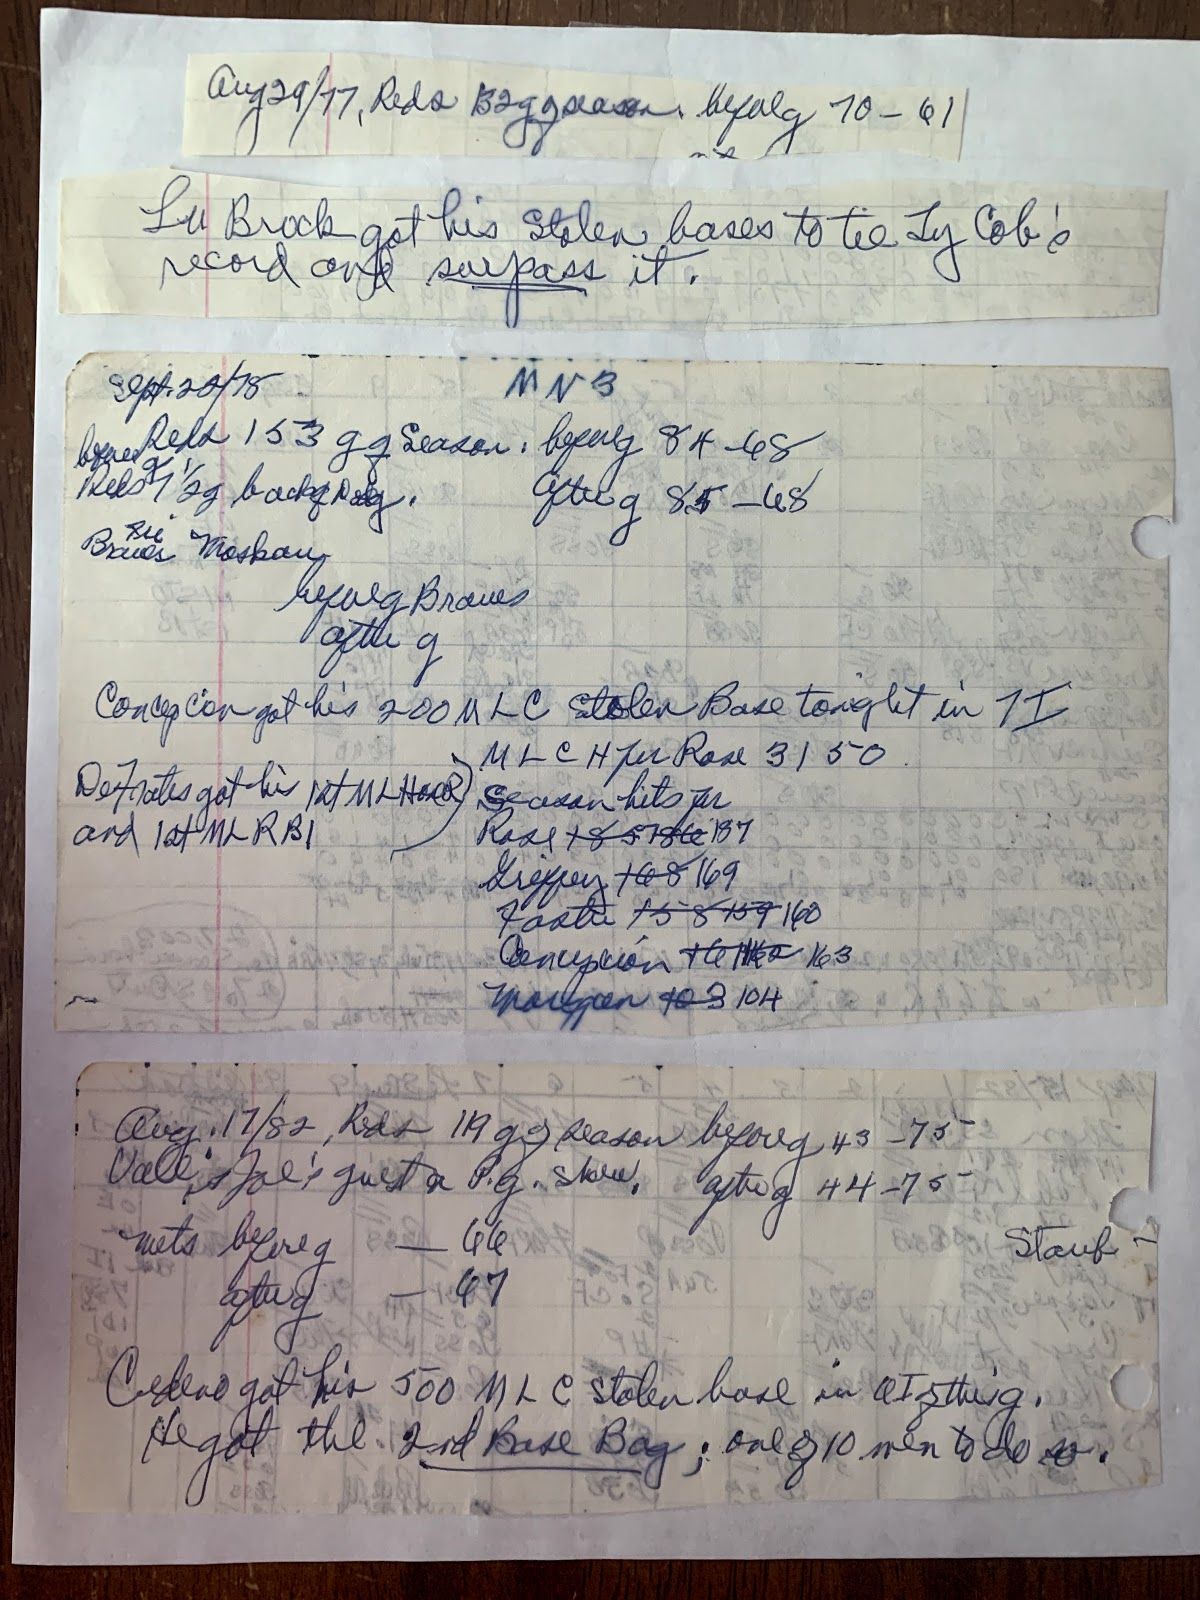 Aug 29/77, Reds 132 g of season. beforeg 70 – 61
Lu Brock got his Stolen bases to tie Ty Cob's
record and surpass it.
Sept. 22/78 M N 3
Reds 153 g of Season. beforeg 84 – 68
Reds 7 1/2 g back of Dodg. after g 85 – 68
Braves Moskau
beforeg Braves
after g
Concepcion got his 200 M L C Stolen Base tonight in 7 I
M L C H for Rose 3150
DeFrates got his 1st M L
and 1st M L R B I
Season hits for
Rose 187
Griffey 168 169
Foster 158 159 160
Concepcion 163
Morgan 103 104
Aug. 17/82, Reds 119 g of season beforeg 43 – 75
Vall is Joe's guest on P.g. Show. after g 44 – 75
Mets beforeg – 66
Staub –
after g – 67
Cedeno got his 500 M L C stolen base in I of this g.
He got the 2nd Base Bag; one of 10 men to do so.